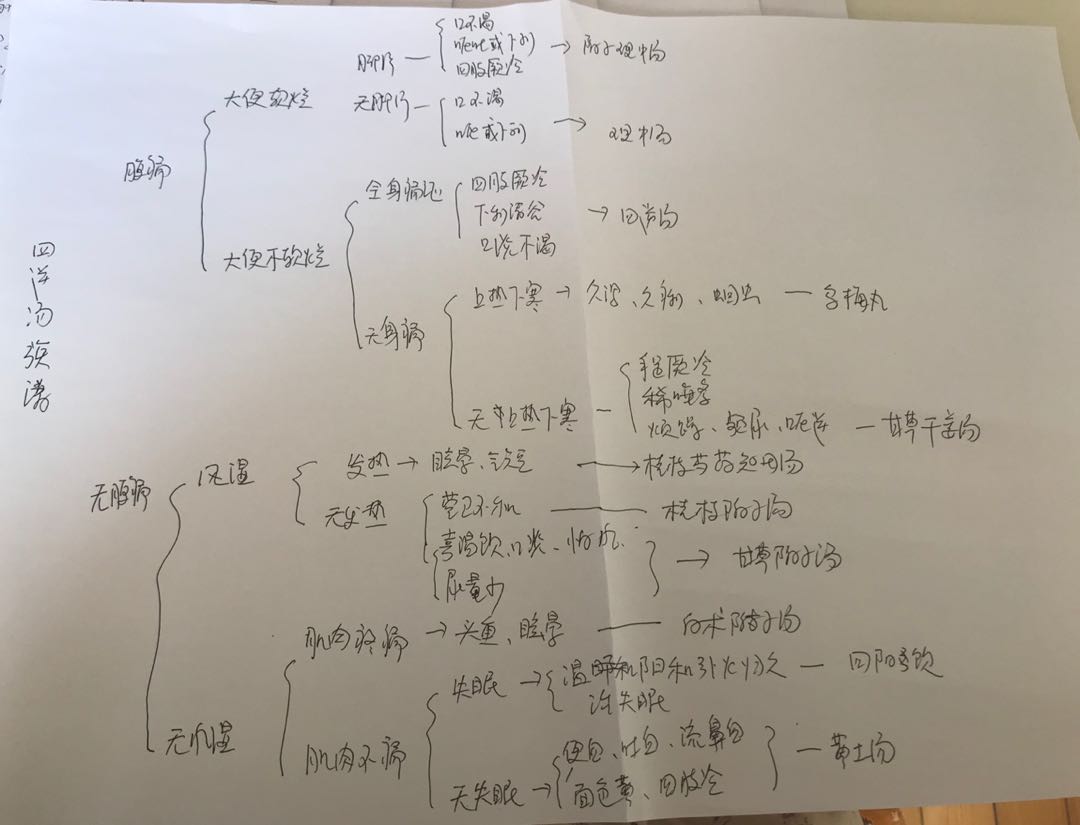 四逆汤族谱
腹痛
大便软烂
脚肿
口不渴
呕吐或下利
四肢厥冷
附子理中汤
无脚肿
口不渴
呕吐或下利
理中汤
大便不软烂
全身痛证
四肢厥冷
下利清谷
口淡不渴
四逆汤
无身痛
上热下寒
久泻、久痢、蛔虫
乌梅丸
无上热下寒
手足厥冷
烦躁、 呃逆
甘草干姜汤
无腹痛
风湿
发热
眩晕、
桂枝芍药知母汤
无发热
营卫不和
桂枝附子汤
喜温饮、口淡、
尿量少
甘草附子汤
无风湿
肌肉疼痛
头重、眩晕
白术附子汤
肌肉不痛
失眠
治失眠
四阳饮
无失眠
便血、吐血、流鼻血
面色黄、四肢冷
黄土汤